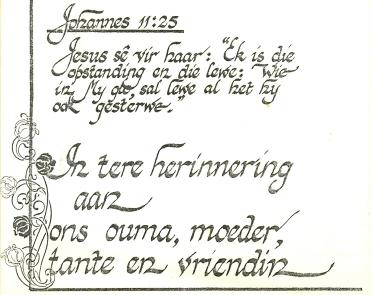 Johannes 11:25
Jesus sê vir haar: "Ek is die
opstanding en die lewe: Wie
in My glo, sal lewe al het hy
ook gesterwe."
In tere herinnering
aan
ons ouma, moeder,
tante en vriendin